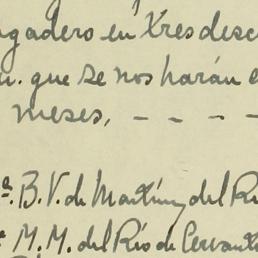 gadero en tres desc
u. que se nos harán e
meses, - - - -
ª. B. V. de Martínez del Rí
ª M. M. del Río de Cervant